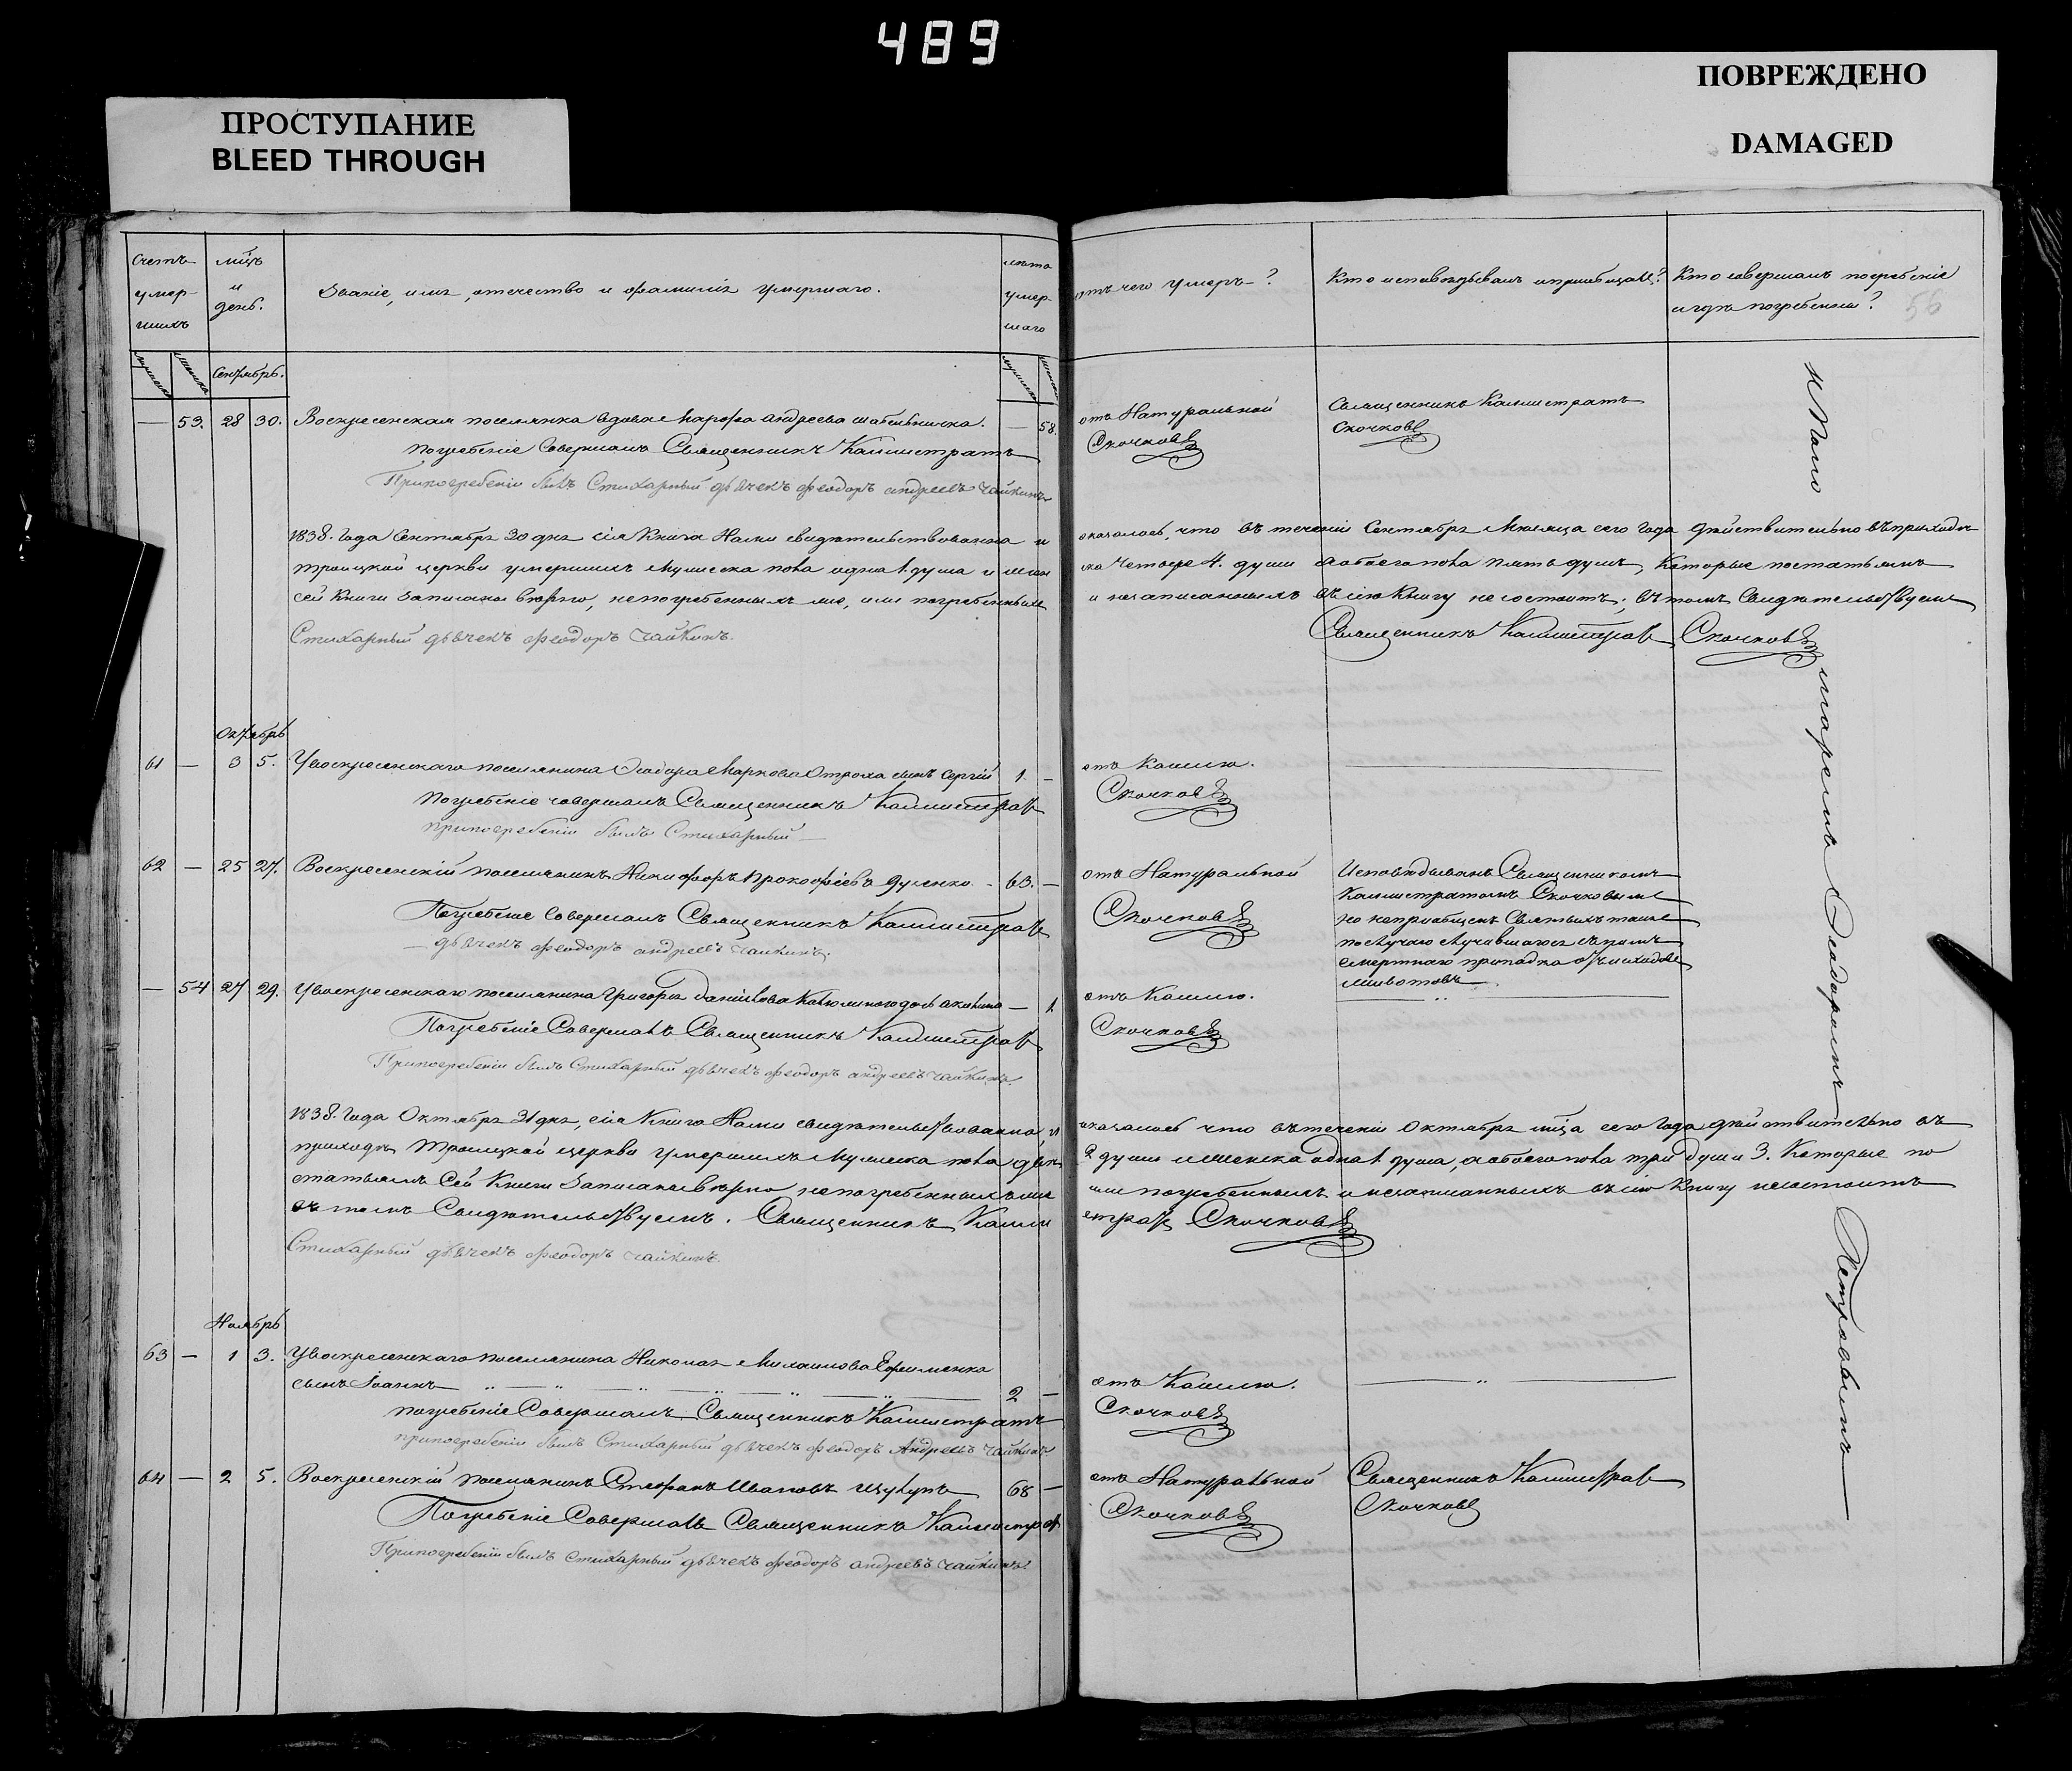 489
ПРОСТУПАНИЕ
BLEED THROUGH
ПОВРЕЖДЕНО
DAMAGED
Счетъ умер-шихъ
мцъ и день.
Званіе, имя, отечество и фамилія умершаго.
лѣта умер-шаго
отъ чего умеръ?
Кто исповѣдывалъ и пріобщалъ?
Кто совершалъ погребеніе и гдѣ погребены?
56
Сентябрь.
— 53. 28 30. Воскресенская поселянка вдова Марфа Андреева — 58. отъ Натуральной Священникъ Калистратъ
Скочковъ Скочковъ
Погребеніе Совершалъ Священникъ Калистратъ
При погребеніи былъ Стихарный дьячекъ Феодоръ Андреевъ Чайкинъ
1838. Года Сентября 30 дня сія Книга Нами свидѣтельствованна и оказалось, что въ теченіи Сентября Мѣсяца сего Года дѣйствительно въ приходѣ
троицкой церкви умершихъ Мужеска пола одна 1. душа и жен ска Четыре 4. души а обоего пола пять душъ, Которые по статьямъ
сей Книги Записаны вѣрно, не погребенныхъ же, или погребенныхъ и незаписанныхъ въ сію Книгу не состоитъ; въ томъ Свидѣтельствуемъ
Священникъ Калистратъ Скочковъ
Стихарный дьячекъ Феодоръ Чайкинъ.
Октябрь
61 — 3 5. У Воскресенскаго поселянина Феодора Маркова сынъ Сергій 1. — отъ Кашлю.
Погребеніе совершалъ Священникъ Калистратъ Скочковъ
При погребеніи былъ Стихарный
62 — 25 27. Воскресенскій поселянинъ Никифоръ Прокофіевъ — 63. — отъ Натуральной Исповѣдыванъ Священникомъ
Калистратомъ Скочковымъ
Погребеніе Совершалъ Священникъ Калистратъ Скочковъ
дьячекъ Феодоръ Андреевъ Чайкинъ.
— 54 27 29. У Воскресенскаго поселянина Григорія Данилова — 1. отъ Кашлю.
Погребеніе Совершалъ Священникъ Калистратъ Скочковъ
При погребеніи былъ Стихарный дьячекъ Феодоръ Андреевъ Чайкинъ
1838. Года Октября 31 дня, сія Книга Нами свидѣтельствованна, и оказалось что въ теченіи Октября мца сего Года дѣйствительно въ
приходѣ Троицкой церкви умершихъ Мужеска пола двѣ 2 души и женска одна 1. душа, а обоего пола три души 3. Которые по
статьямъ Сей Книги Записаны вѣрно не погребенныхъ же или погребенныхъ и незаписанныхъ въ сію Книгу не состоитъ
въ томъ Свидѣтельствуемъ. Священникъ Кали стратъ Скочковъ
Стихарный дьячекъ Феодоръ Чайкинъ.
Ноябрь
63 — 1 3. У Воскресенскаго поселянина Николая Михаилова Ефименка
сынъ Іоаннъ 2 — отъ Кашлю.
Погребеніе Совершалъ Священникъ Калистратъ Скочковъ
При погребеніи былъ Стихарный дьячекъ Феодоръ Андреевъ Чайкинъ
64 — 2 5. Воскресенскій поселянинъ Стефанъ Ивановъ 68 — отъ Натуральной Священникъ Калистратъ
Скочковъ Скочковъ
Погребеніе Совершалъ Священникъ Калистратъ
При погребеніи былъ стихарный дьячекъ Феодоръ Андреевъ Чайкинъ
Феодоромъ Петровымъ